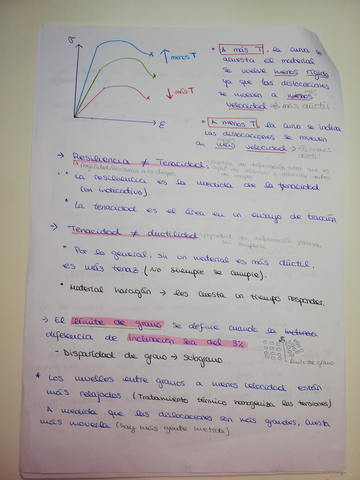 σ
↑ menos T
↓ más T
ε
• A más T, la curva se
acuesta el material
se vuelve menos rígido
ya que las dislocaciones
se mueven a menos
velocidad → más dúctil
• A menos T, la curva se indica
las dislocaciones se mueven
a más velocidad → menos dúctil
→ Resiliencia ≠ Tenacidad
• La resiliencia es la medida de la tenacidad
(un indicativo).
• La tenacidad es el área en un ensayo de tracción
→ Tenacidad ≠ ductilidad
• Por lo general, si un material es más dúctil,
es más tenaz (No siempre se cumple).
• Material haragán → les cuesta un tiempo responder.
→ El límite de grano se define cuando la
diferencia de inclinación sea del 3%
límite de grano
- Disparidad de grano → subgrano
• Los muelles entre granos a menos velocidad están
más relajados (Tratamiento térmico homogeniza las tensiones)
A medida que las dislocaciones son más grandes, cuesta
más moverla (hay más gente metida)